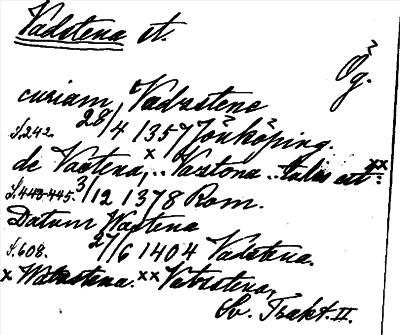 Vadstena st.
Ög.
curiam Vadzstene
S. 242. 28/4 1357 Jönköping.
de Vastena, x .. Vaztona .. talis est xx:
S. 443-445. 3/12 1378 Rom.
Datum Wastena
S. 608. 27/6 1404 Vadstena.
x Watzstena. xx Vatzstena,
Sv. Trakt. II.